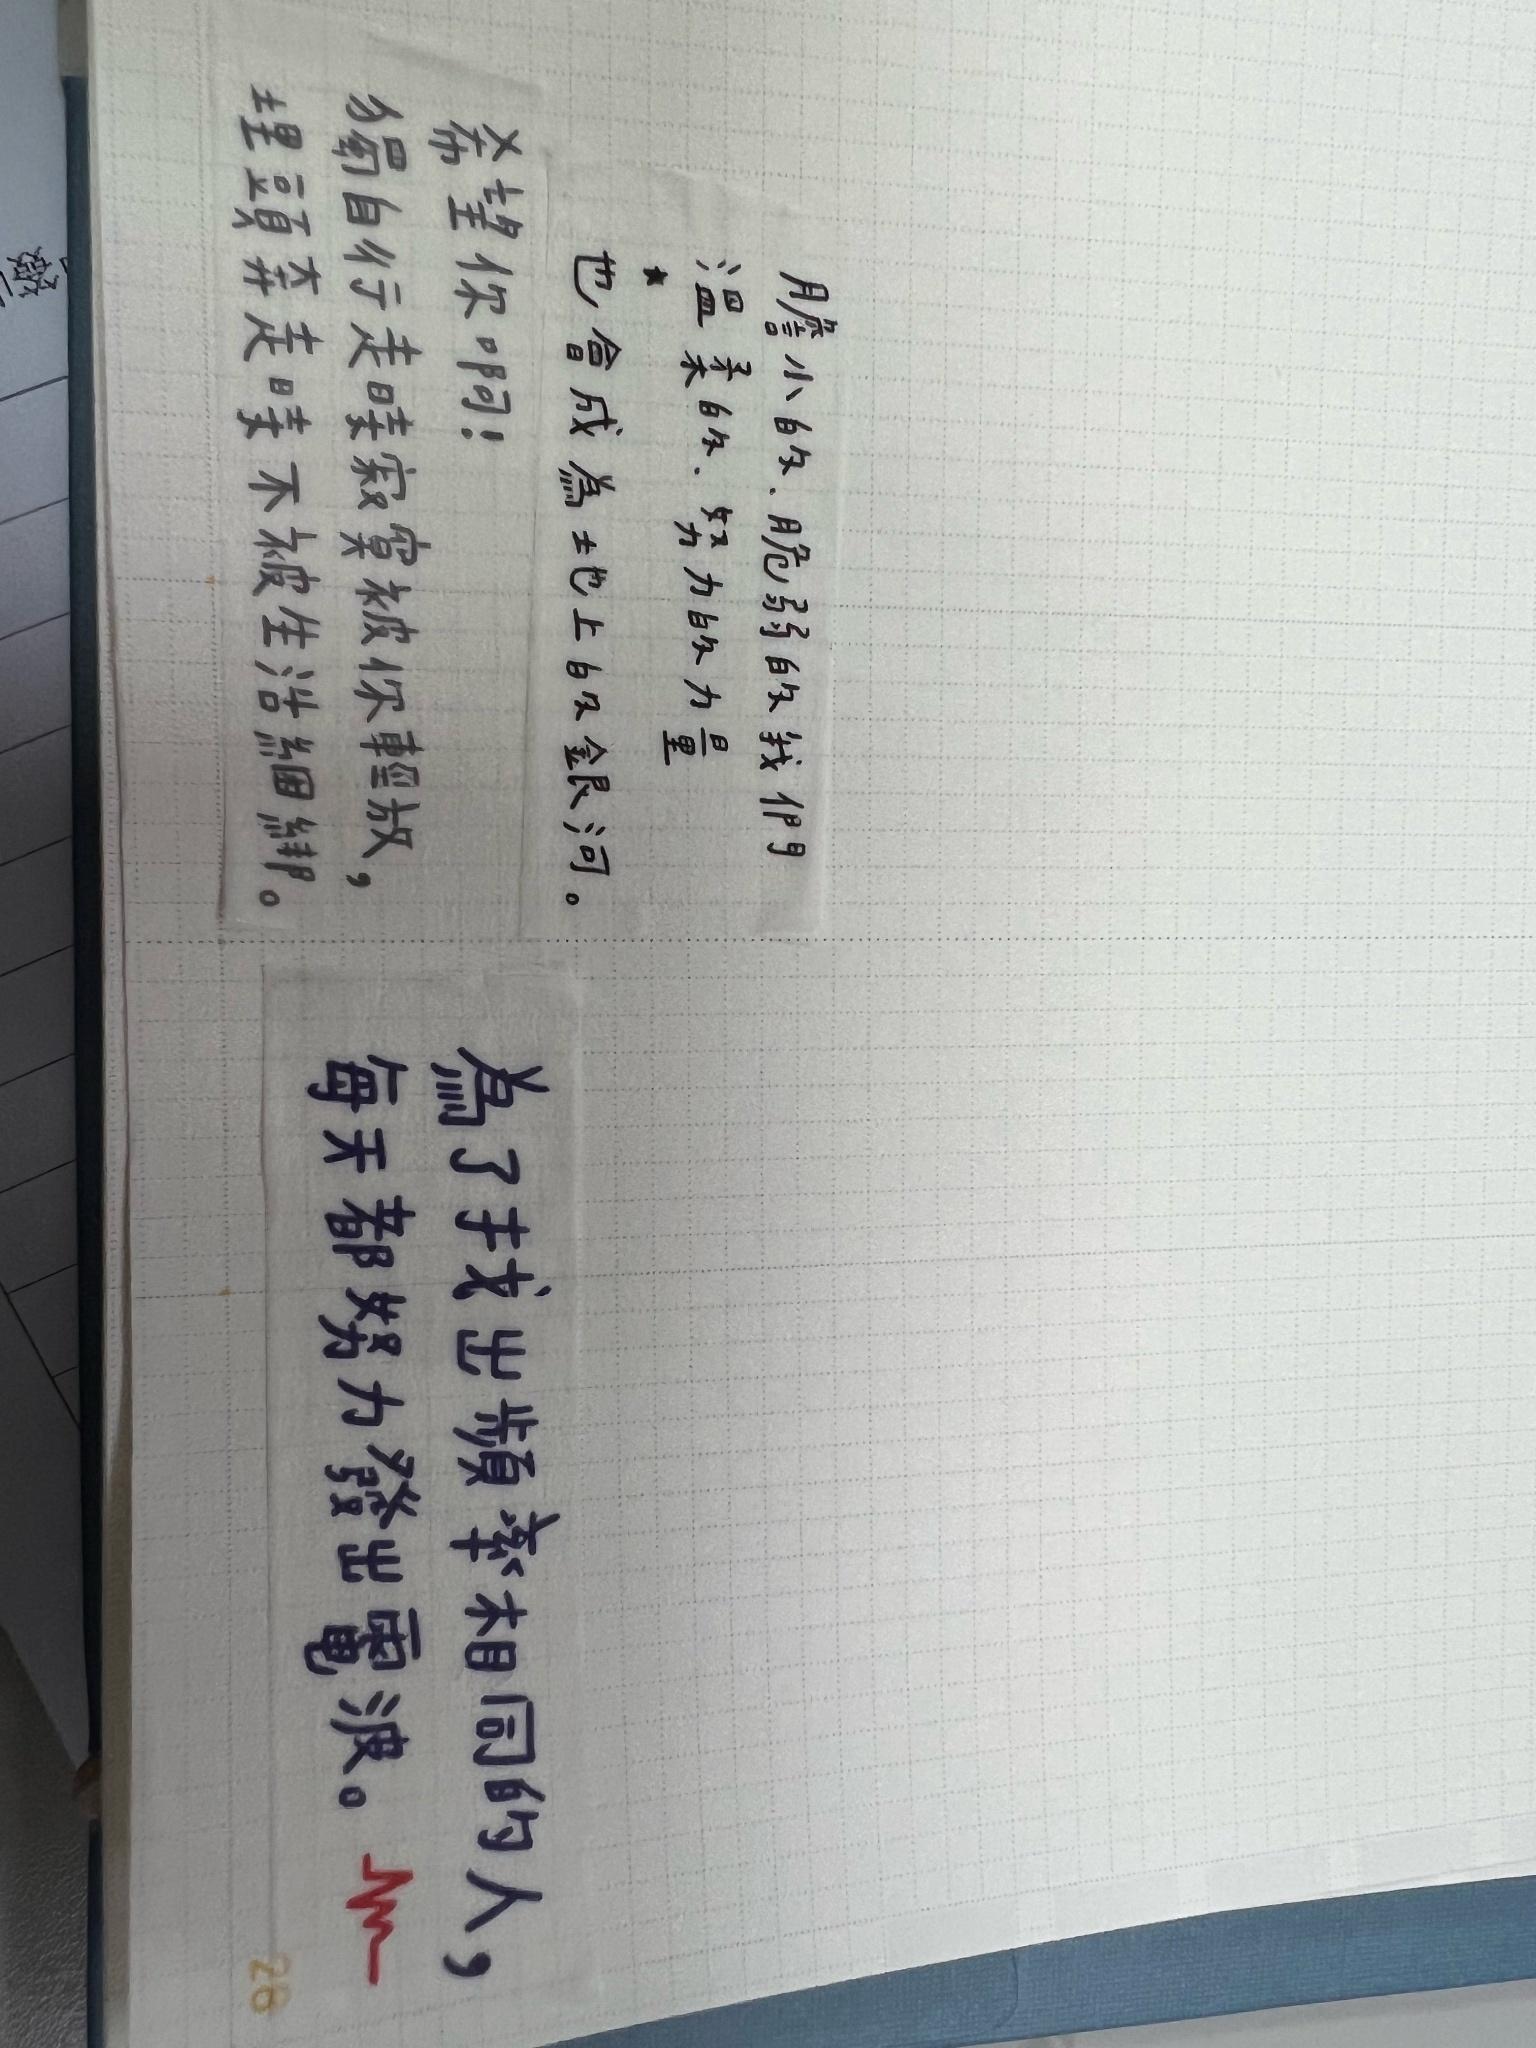 膽小的、脆弱的我們
溫柔的、努力的力量
★也會成為土地上的銀河。
希望你啊!
獨自行走時寂寞被你輕放,
埋頭奔走時不被生活綑綁。
為了找出頻率相同的人,
每天都努力發出電波。
28